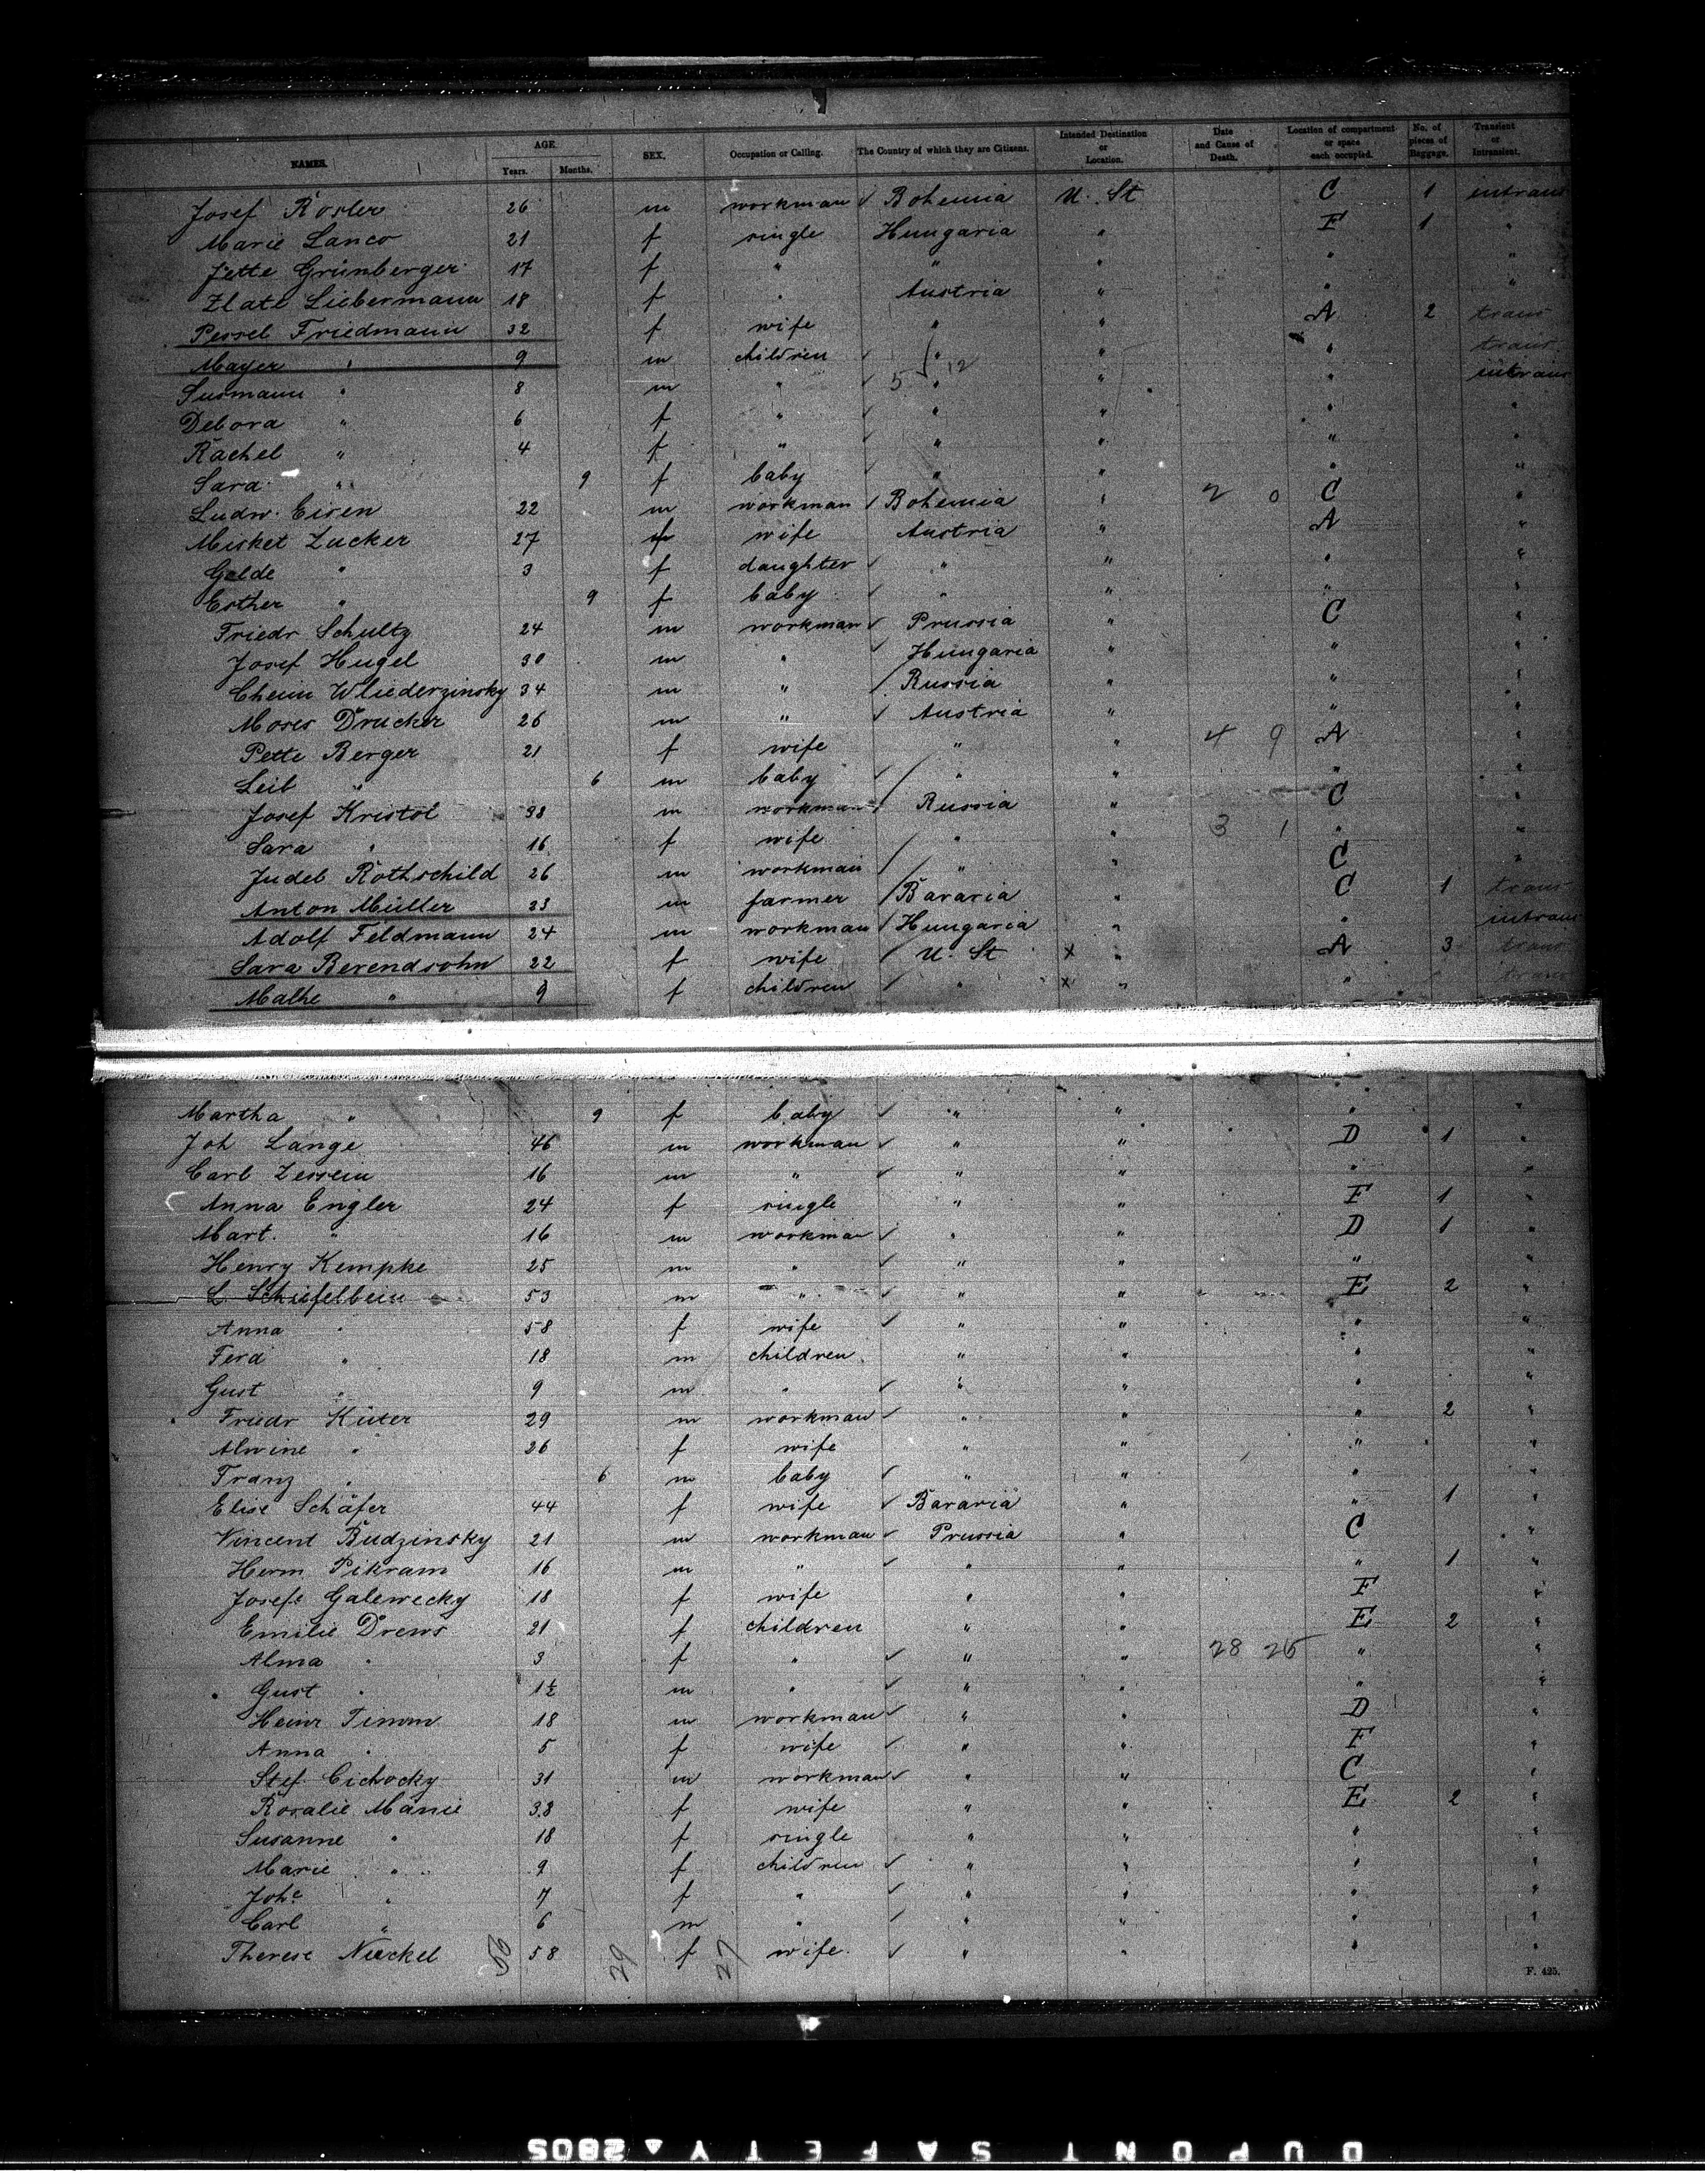 NAMES. AGE. Years. Months. SEX. Occupation or Calling. The Country of which they are Citizens. Intended Destination or Location. Date and Cause of Death. Location of compartment or space each occupied. No. of pieces of Baggage. Transient or Intransient.
Josef Rösler 26 m workman ✓ Bohemia U. St C 1 intrans
Marie Lanco 21 f single Hungaria " F 1 "
Jette Grünberger 17 f " " " " "
Zlate Liebermann 18 f " Austria " " "
Pessel Friedmann 32 f wife " " A 2 trans
Mayer " 9 m children ✓ " 12 " " trans
Susmann " 8 m " ✓ 5 " " " intrans
Debora " 6 f " ✓ " " " "
Rachel " 4 f " ✓ " " " "
Sara " 9 f baby ✓ " " " "
Ludw. Eisen 22 m workman ✓ Bohemia " 2 0 C "
Misket Zucker 27 f wife Austria " A "
Golde " 3 f daughter ✓ " " " "
Esther " 9 f baby ✓ " " " "
Friedr Schultz 24 m workman ✓ Prussia " C "
Josef Hugel 30 m " ✓ Hungaria " " "
Cheim Wliederzinsky 34 m " / Russia " "
Moses Drucker 26 m " ✓ Austria " " "
Pette Berger 21 f wife " " 4 9 A "
Leib " 6 m baby ✓ / " " " "
Josef Kristol 38 m workman Russia " C "
Sara " 16 f wife / " " 3 1 " "
Judel Rothschild 26 m workman / " " C "
Anton Müller 23 m farmer / Bavaria " C 1 trans
Adolf Feldmann 24 m workman / Hungaria " " intrans
Sara Berendsohn 22 f wife ✓ U. St X " A 3 trans
Malhe " 9 f children ✓ " X " " trans
Martha " 9 f baby ✓ " " " "
Joh Lange 46 m workman ✓ " " D 1 "
Carl Zessein 16 m " ✓ " " " "
Anna Engler 24 f single " " F 1 "
Mart. " 16 m workman ✓ " " D 1 "
Henry Kempke 25 m " ✓ " " " "
L. Schiefelbein 53 m " ✓ " " E 2 "
Anna " 58 f wife ✓ " " " "
Ferd " 18 m children " " " "
Gust " 9 m " ✓ " " " "
Friedr Küter 29 m workman ✓ " " " 2 "
Alwine " 26 f wife " " " "
Franz " 6 m baby ✓ " " " "
Elise Schäfer 44 f wife ✓ Bavaria " " 1 "
Vincent Budzinsky 21 m workman ✓ Prussia " C "
Herm Pikram 16 m " ✓ " " " 1 "
Josefe Galewecky 18 f wife " " F "
Emilie Drews 21 f children " " E 2 "
Alma " 3 f " ✓ " " 28 26 " "
Gust " 1½ m " ✓ " " " "
Heinr Timm 18 m workman ✓ " " D "
Anna " 5 f wife ✓ " " F "
Stef. Cichocky 31 m workman ✓ " " C "
Rosalie Manie 38 f wife " " E 2 "
Susanne " 18 f single " " " "
Marie " 9 f children ✓ " " " "
Johe " 7 f " ✓ " " " "
Carl " 6 m " ✓ " " " "
Therese Nuckel 58 f wife. ✓ " " " "
56 29 27
F. 425.
DUPONT SAFETY 2805